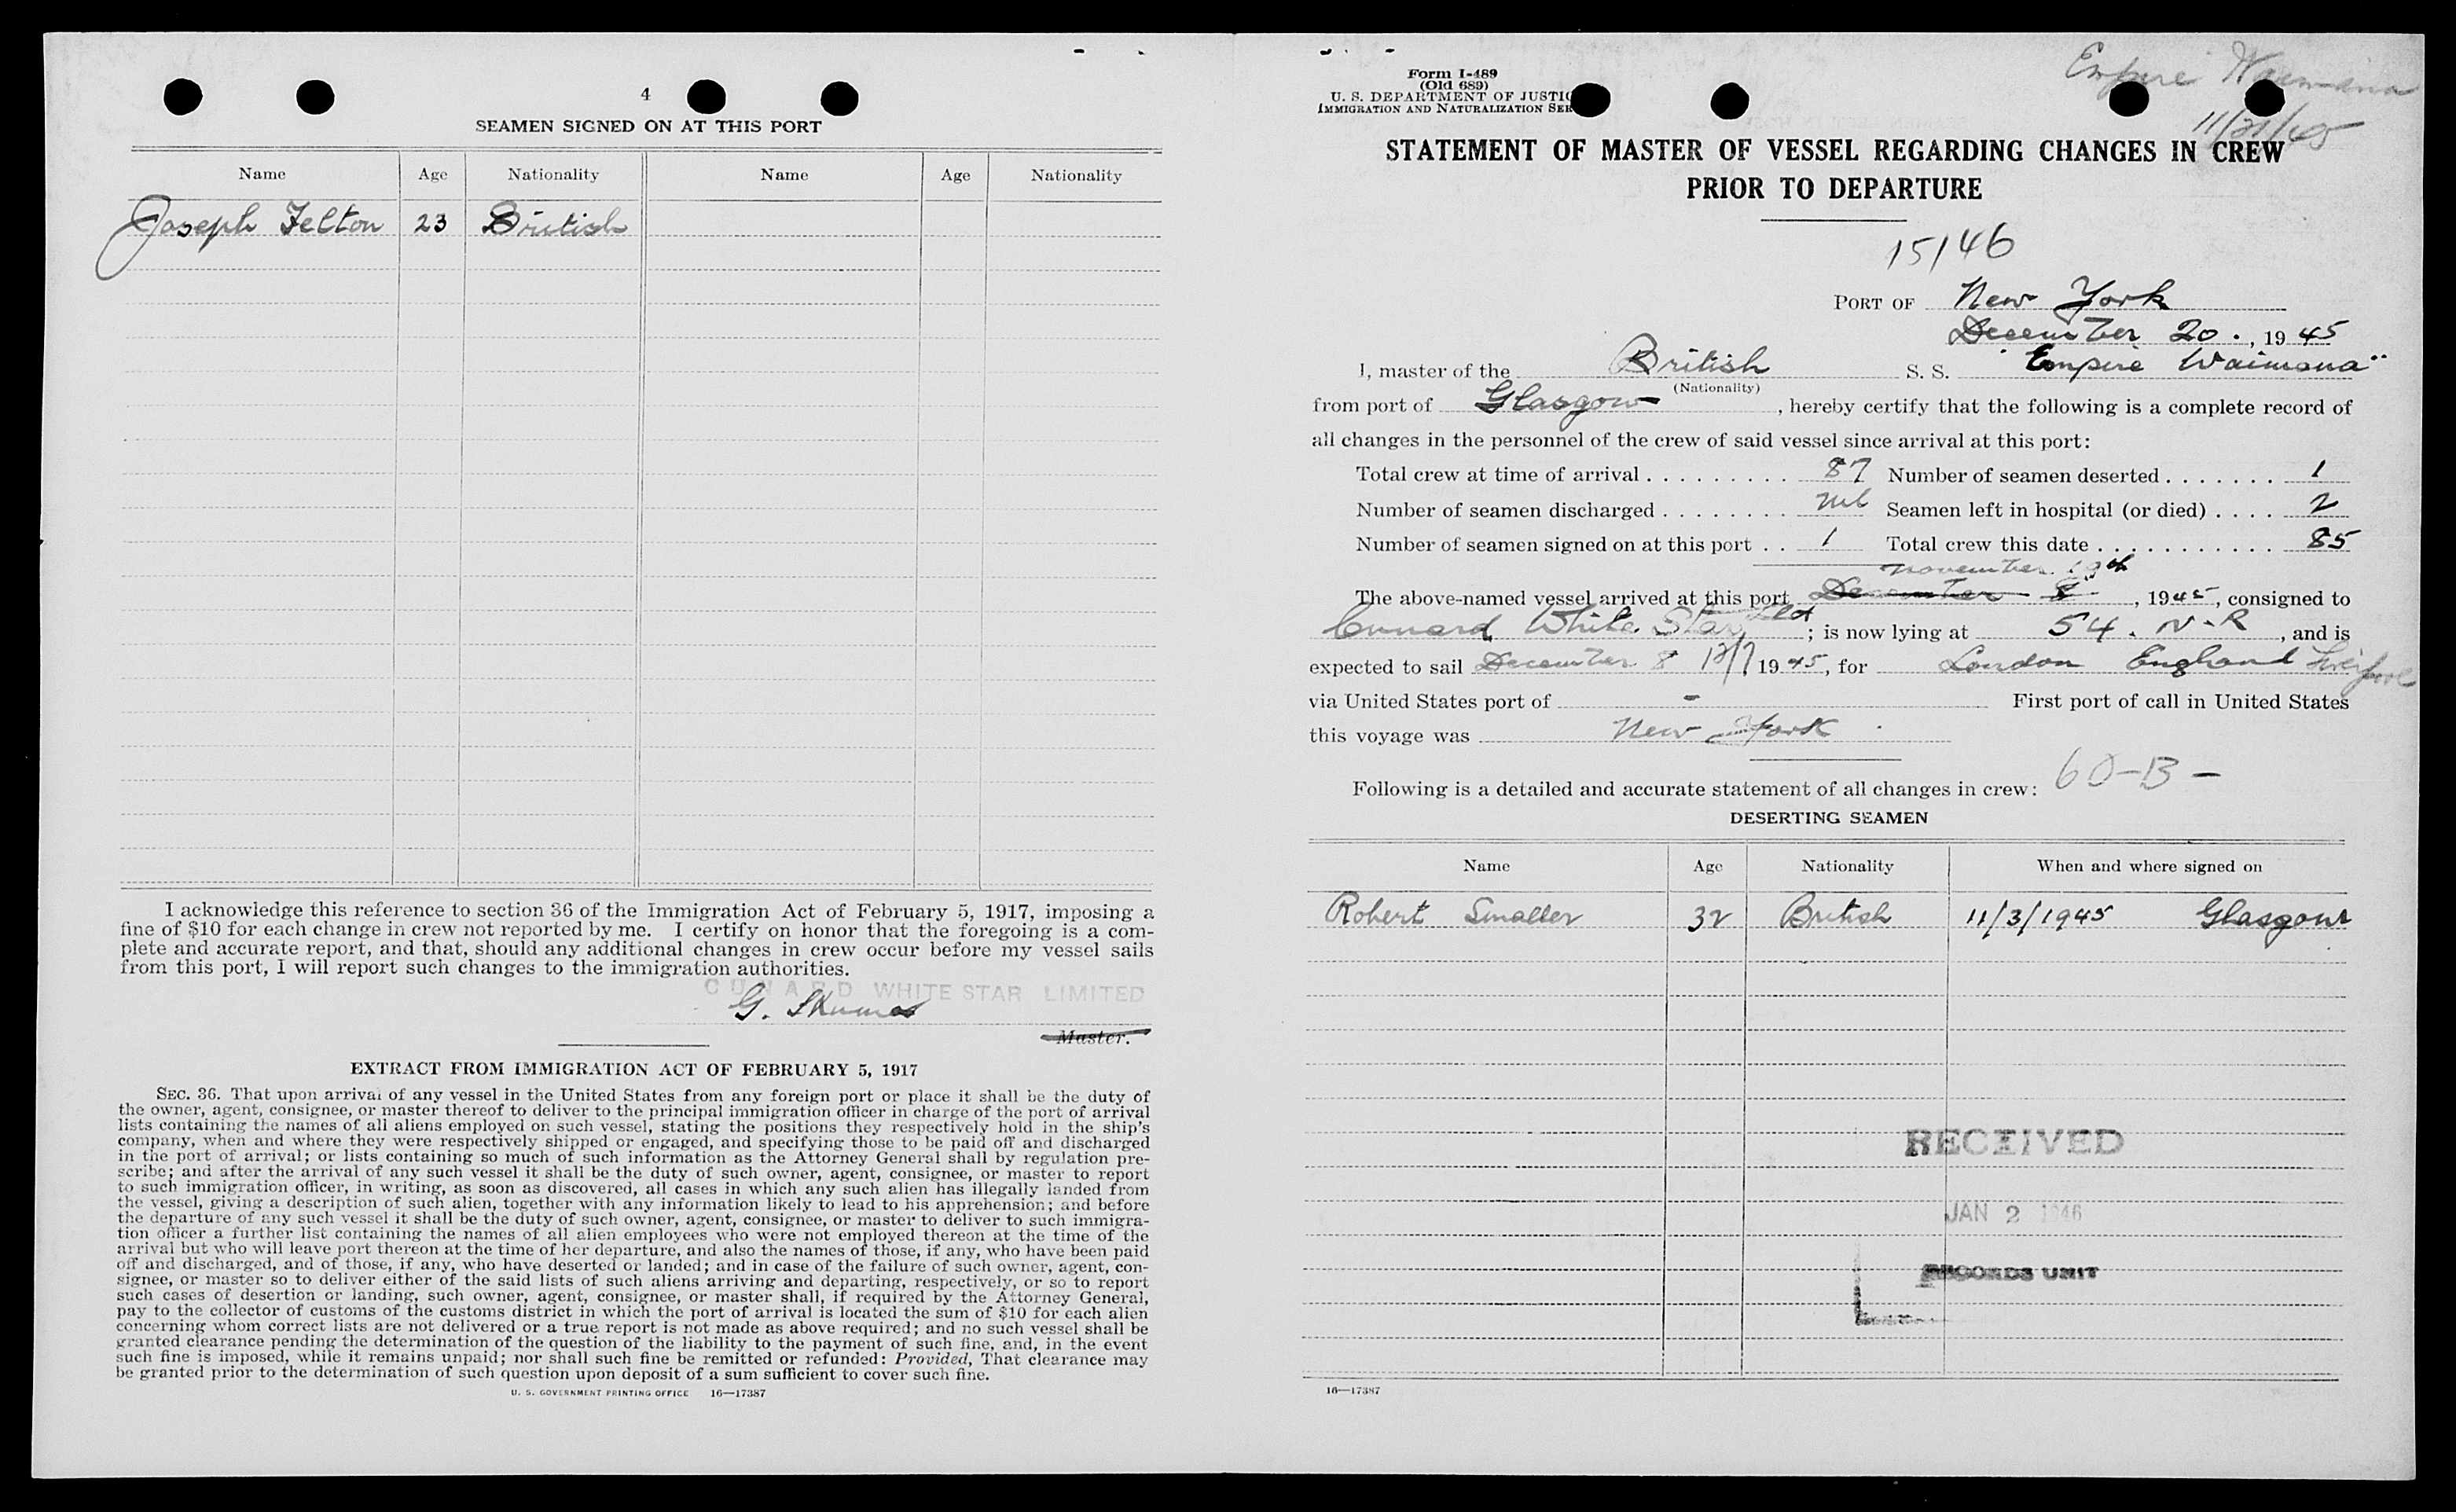 4
SEAMEN SIGNED ON AT THIS PORT
Name Age Nationality Name Age Nationality
Joseph Felton 23 British
I acknowledge this reference to section 36 of the Immigration Act of February 5, 1917, imposing a
fine of $10 for each change in crew not reported by me. I certify on honor that the foregoing is a com-
plete and accurate report, and that, should any additional changes in crew occur before my vessel sails
from this port, I will report such changes to the immigration authorities.
CUNARD WHITE STAR LIMITED
G.
Master.
EXTRACT FROM IMMIGRATION ACT OF FEBRUARY 5, 1917
SEC. 36. That upon arrival of any vessel in the United States from any foreign port or place it shall be the duty of
the owner, agent, consignee, or master thereof to deliver to the principal immigration officer in charge of the port of arrival
lists containing the names of all aliens employed on such vessel, stating the positions they respectively hold in the ship's
company, when and where they were respectively shipped or engaged, and specifying those to be paid off and discharged
in the port of arrival; or lists containing so much of such information as the Attorney General shall by regulation pre-
scribe; and after the arrival of any such vessel it shall be the duty of such owner, agent, consignee, or master to report
to such immigration officer, in writing, as soon as discovered, all cases in which any such alien has illegally landed from
the vessel, giving a description of such alien, together with any information likely to lead to his apprehension; and before
the departure of any such vessel it shall be the duty of such owner, agent, consignee, or master to deliver to such immigra-
tion officer a further list containing the names of all alien employees who were not employed thereon at the time of the
arrival but who will leave port thereon at the time of her departure, and also the names of those, if any, who have been paid
off and discharged, and of those, if any, who have deserted or landed; and in case of the failure of such owner, agent, con-
signee, or master so to deliver either of the said lists of such aliens arriving and departing, respectively, or so to report
such cases of desertion or landing, such owner, agent, consignee, or master shall, if required by the Attorney General,
pay to the collector of customs of the customs district in which the port of arrival is located the sum of $10 for each alien
concerning whom correct lists are not delivered or a true report is not made as above required; and no such vessel shall be
granted clearance pending the determination of the question of the liability to the payment of such fine, and, in the event
such fine is imposed, while it remains unpaid; nor shall such fine be remitted or refunded: Provided, That clearance may
be granted prior to the determination of such question upon deposit of a sum sufficient to cover such fine.
U. S. GOVERNMENT PRINTING OFFICE 16—17387
Form I-489
(Old 689)
U. S. DEPARTMENT OF JUSTIC
IMMIGRATION AND NATURALIZATION SER
Empire Waimana
11/21/45
STATEMENT OF MASTER OF VESSEL REGARDING CHANGES IN CREW
PRIOR TO DEPARTURE
15146
PORT OF New York
December 20., 1945
I, master of the British S. S. "Empire Waimana"
(Nationality)
from port of Glasgow, hereby certify that the following is a complete record of
all changes in the personnel of the crew of said vessel since arrival at this port:
Total crew at time of arrival . . . . . . . . . 87 Number of seamen deserted . . . . . . . 1
Number of seamen discharged . . . . . . . . nil Seamen left in hospital (or died) . . . . 2
Number of seamen signed on at this port . . 1 Total crew this date . . . . . . . . . . . 85
November 19th
The above-named vessel arrived at this port December 8, 1945, consigned to
Cunard White Star Ltd; is now lying at 54. N.R, and is
expected to sail December 8 12/7 1945, for London England Liverpool
via United States port of - First port of call in United States
this voyage was New York.
Following is a detailed and accurate statement of all changes in crew: 60-B-
DESERTING SEAMEN
Name Age Nationality When and where signed on
Robert Smaller 32 British 11/3/1945 Glasgow
RECEIVED
JAN 2 1946
RECORDS UNIT
16—17387